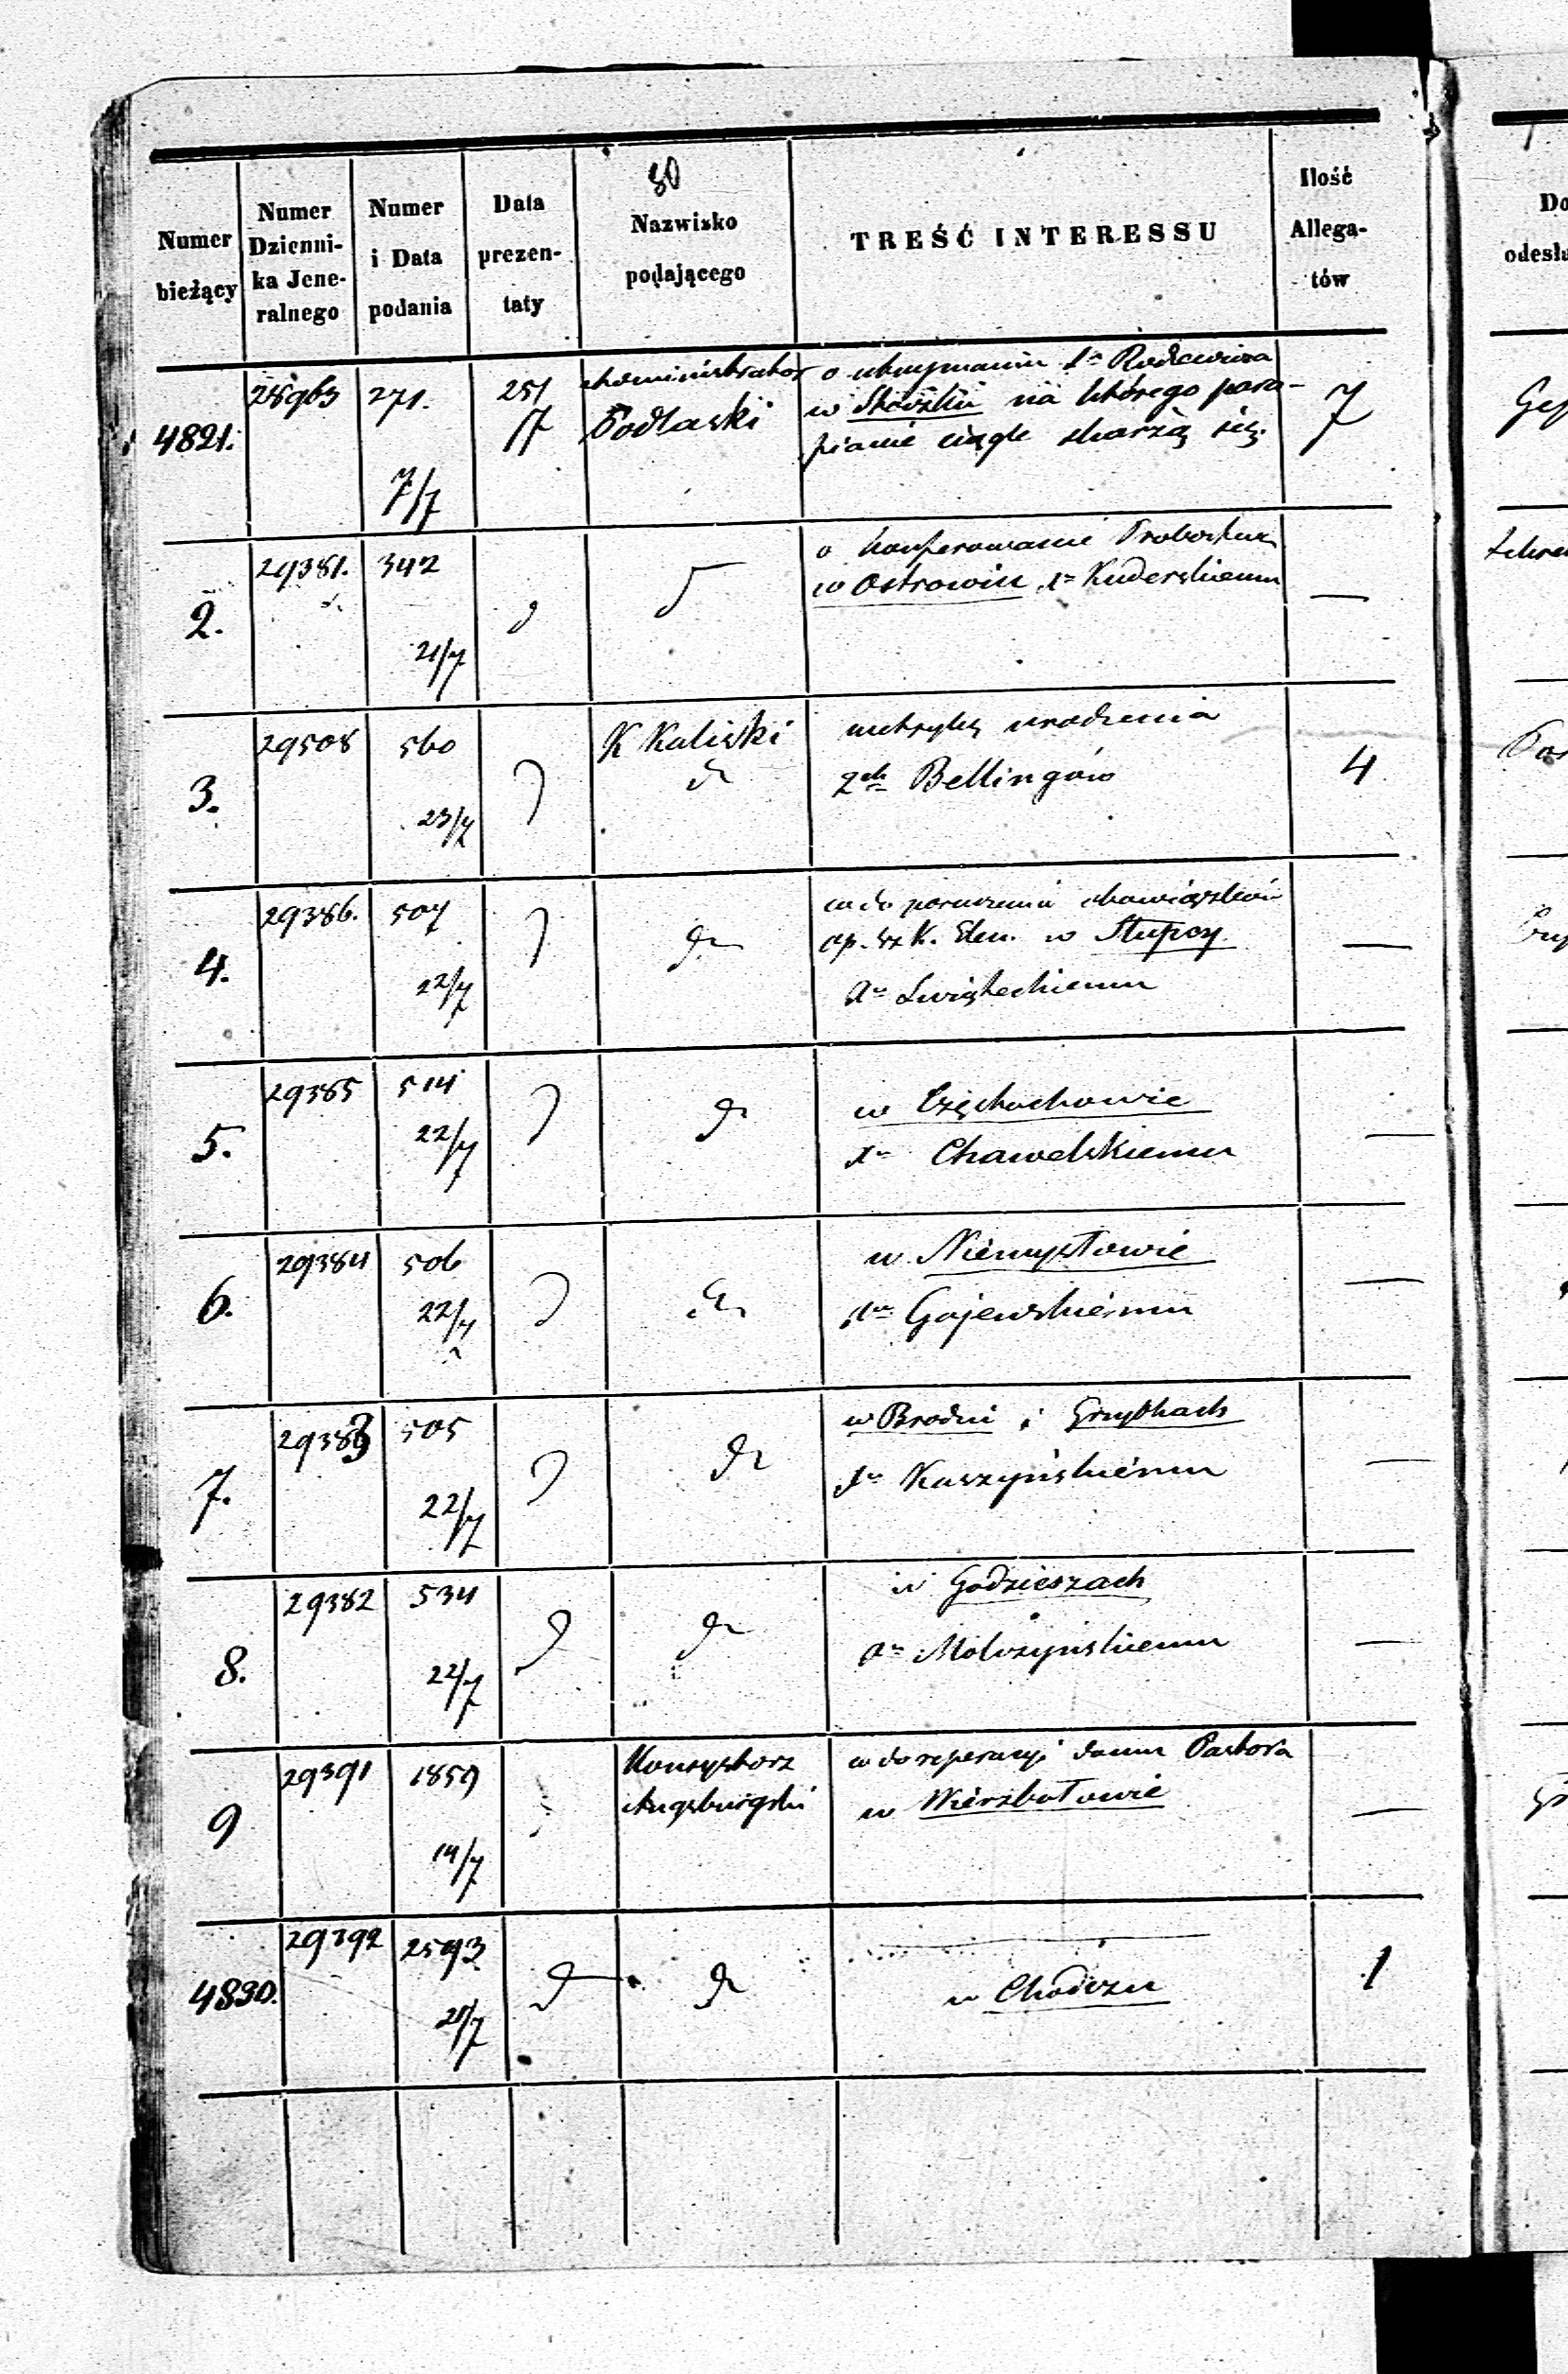 80
Numer
bieżący
Numer
Dzienni-
ka Jene-
ralnego
Numer
i Data
podania
Data
prezen-
taty
Nazwisko
podającego
TREŚĆ INTERESSU
Ilość
Allega-
tów
4821.
28963
271.
7/7
251
/7
Administrator
Podlaski
o utrzymaniu
w na którego para-
fianie ciągle skarżą się.
7
2.
29381.
342
21/7
o konferowanie Probostwa
w Ostrowiu Xu Kuderskiemu
—
3.
29508
560
23/7
K Kaliski
dt
metrykę urodzenia
2ch Bellingów
4
4.
29386.
507
22/7
dto
co do poruczenia obowiązków
op. szk. Elem. w Słupcy
Xu Świąteckiemu
—
5.
29385
514
22/7
dt
w Częstochowie
Xu Chawelskiemu
—
6.
29384
506
22/7
dt
w Niemysłowie
Xu Gajewskiemu
—
7.
29383
505
22/7
dt
w Brodni i Grzybkach
Xu Kaszyńskiemu
—
8.
29382
534
22/7
dt
w Godzieszach
Xu Molczyńskiemu
—
9
29391
1859
14/7
Konsystorz
Augsburgski
co do reperacyi domu Pastora
w Wierzbołowie
—
4830.
29392
2593
21/7
dt
w Chodczu
1
Do
odesła